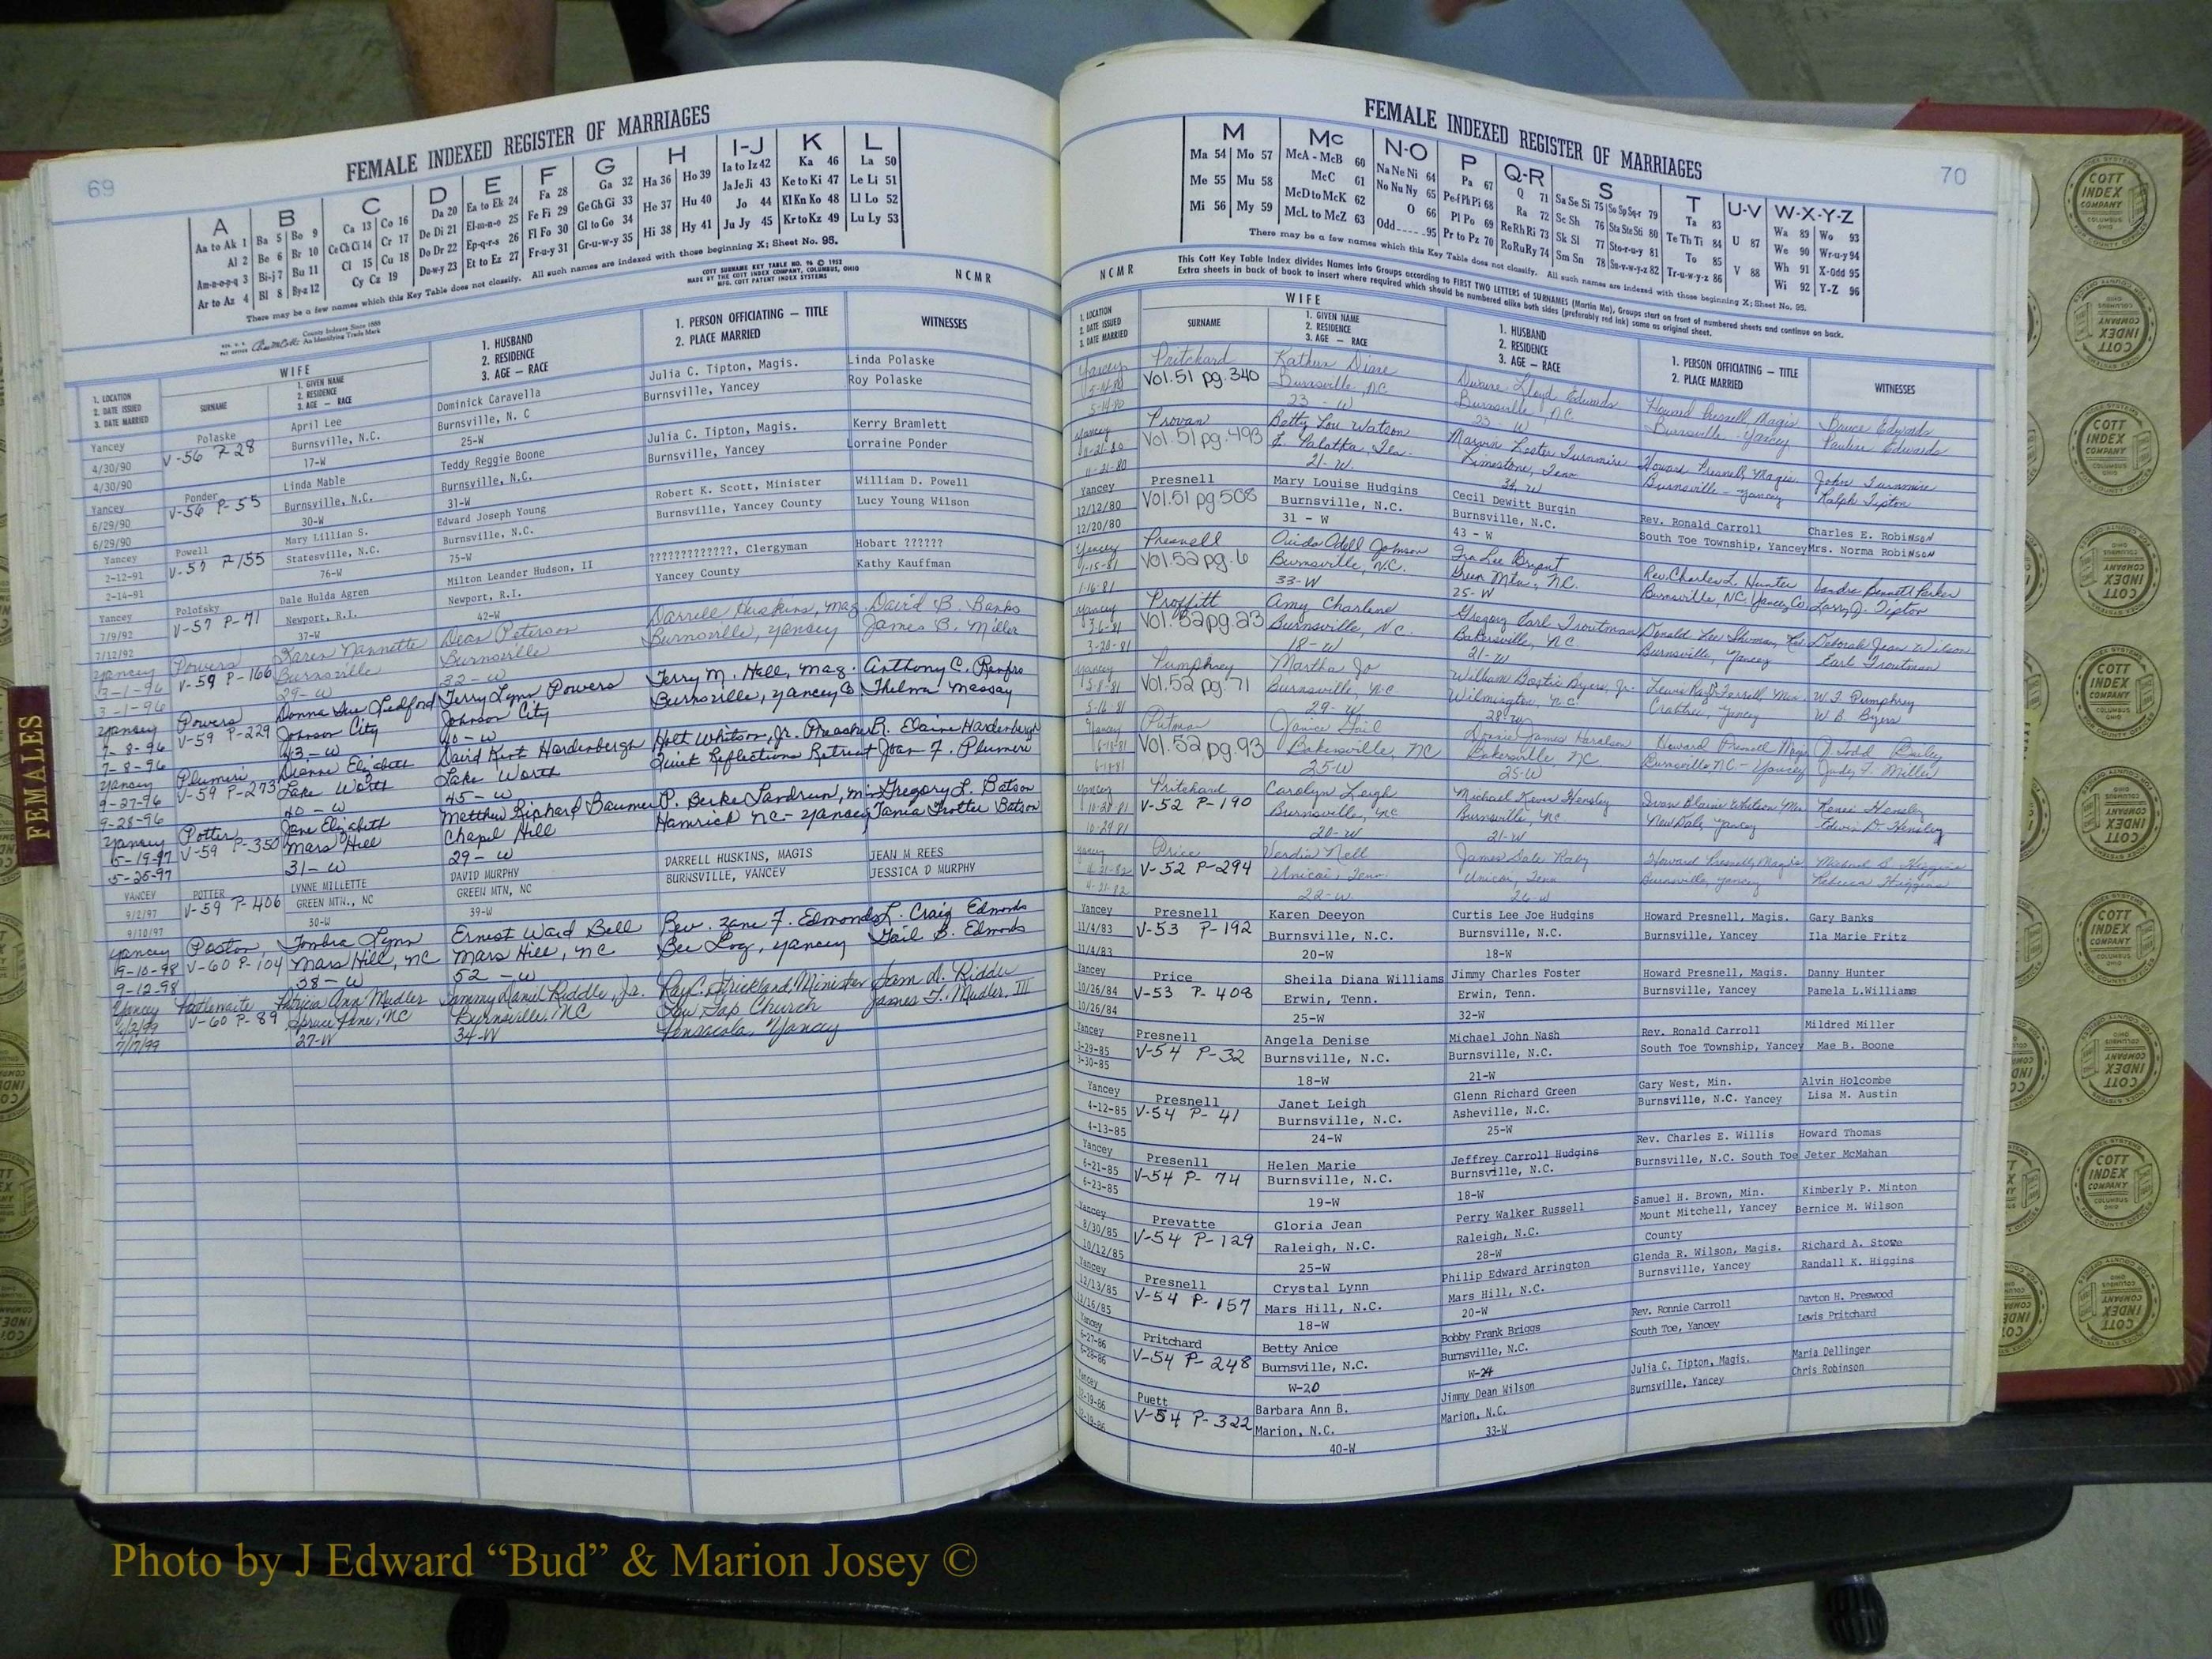 69
FEMALE INDEXED REGISTER OF MARRIAGES
A B C D E F G H I-J K L
Aa to Ak 1 Ba 5 Bo 9 Ca 13 Co 16 Da 20 Ea to Ek 24 Fa 28 Ga 32 Ha 36 Ho 39 Ia to Iz 42 Ka 46 La 50
Al 2 Be 6 Br 10 Ce Ch Ci 14 Cr 17 De Di 21 El-m-n-o 25 Fe Fi 29 Ge Gh Gi 33 He 37 Hu 40 Ja Je Ji 43 Ke to Ki 47 Le Li 51
Am-n-o-p-q 3 Bi-j 7 Bu 11 Cl 15 Cu 18 Do Dr 22 Ep-q-r-s 26 Fl Fo 30 Gl to Go 34 Hi 38 Hy 41 Jo 44 Kl Kn Ko 48 Ll Lo 52
Ar to Az 4 Bl 8 By-z 12 Cy Cz 19 Du-w-y 23 Et to Ez 27 Fr-u-y 31 Gr-u-w-y 35 Ju Jy 45 Kr to Kz 49 Lu Ly 53
There may be a few names which this Key Table does not classify. All such names are indexed with those beginning X; Sheet No. 95.
COTT SURNAME KEY TABLE NO. 96 © 1952
MADE BY THE COTT INDEX COMPANY, COLUMBUS, OHIO
MFG. COTT PATENT INDEX SYSTEMS
NCMR
County Indexes Since 1888
An Identifying Trade Mark
WIFE
1. LOCATION
2. DATE ISSUED
3. DATE MARRIED
SURNAME
1. GIVEN NAME
2. RESIDENCE
3. AGE — RACE
1. HUSBAND
2. RESIDENCE
3. AGE — RACE
1. PERSON OFFICIATING — TITLE
2. PLACE MARRIED
WITNESSES
Yancey Polaske April Lee Dominick Caravella Julia C. Tipton, Magis. Linda Polaske
4/30/90 V-56 P-28 Burnsville, N.C. Burnsville, N. C Burnsville, Yancey Roy Polaske
4/30/90 17-W 25-W
Yancey Ponder Linda Mable Teddy Reggie Boone Julia C. Tipton, Magis. Kerry Bramlett
6/29/90 V-56 P-55 Burnsville, N.C. Burnsville, N.C. Burnsville, Yancey Lorraine Ponder
6/29/90 30-W 31-W
Yancey Powell Mary Lillian S. Edward Joseph Young Robert K. Scott, Minister William D. Powell
2-12-91 V-57 P/55 Statesville, N.C. Burnsville, N.C. Burnsville, Yancey County Lucy Young Wilson
2-14-91 76-W 75-W
Yancey Polofsky Dale Hulda Agren Milton Leander Hudson, II ?????????????, Clergyman Hobart ??????
7/9/92 V-57 P-71 Newport, R.I. Newport, R.I. Yancey County Kathy Kauffman
7/12/92 37-W 42-W
Yancey Powers Karen Nannette Dean Peterson Darrell Huskins, Mag. David B. Banks
3-1-96 V-59 P-166 Burnsville Burnsville Burnsville, Yancey James B. Miller
3-1-96 29-W 32-W
Yancey Powers Donna Sue Ledford Terry Lynn Powers Terry M. Hall, Mag. Anthony C. Renfro
7-8-96 V-59 P-229 Johnson City Johnson City Burnsville, Yancey Co Thelma Massey
7-8-96 43-W 40-W
Yancey Plumeri Dianne Elizabeth David Kent Hardenbergh Holt Whitson, Jr. Preacher R. Elaine Hardenbergh
9-27-96 V-59 P-273 Lake Worth Lake Worth Quiet Reflections Retreat Joan F. Plumeri
9-28-96 40-W 45-W
Yancey Potter Jane Elizabeth Matthew Richard Baumer P. Berke Landrum, Min Gregory L. Batson
5-19-97 V-59 P-350 Mars Hill Chapel Hill Hamrick NC-Yancey Tania Trotter Batson
5-25-97 31-W 29-W
YANCEY POTTER LYNNE MILLETTE DAVID MURPHY DARRELL HUSKINS, MAGIS JEAN M REES
9/2/97 V-59 P-406 GREEN MTN., NC GREEN MTN, NC BURNSVILLE, YANCEY JESSICA D MURPHY
9/10/97 30-W 39-W
Yancey Poston, Tombra Lynn Ernest Ward Bell Rev. Zane F. Edmonds L. Craig Edmonds
9-10-98 V-60 P-104 Mars Hill, NC Mars Hill, NC Bee Log, Yancey Gail B. Edmonds
9-12-98 38-W 52-W
Yancey Patricia Ann Mudler Sammy Daniel Riddle, Jr. Ray C. Strickland, Minister Sam D. Riddle
V-60 P-89 Spruce Pine, NC Burnsville, NC Low Gap Church James F. Mudler, III
7/17/99 27-W 34-W Pensacola, Yancey
FEMALES
70
FEMALE INDEXED REGISTER OF MARRIAGES
M Mc N-O P Q-R S T U-V W-X-Y-Z
Ma 54 Mo 57 McA - McB 60 Na Ne Ni 64 Pa 67 Q 71 Sa Se Si 75 So Sp Sq-r 79 Ta 83 U 87 Wa 89 Wo 93
Me 55 Mu 58 McC 61 No Nu Ny 65 Pe-f Ph Pi 68 Ra 72 Sc Sh 76 Sta Ste Sti 80 Te Th Ti 84 V 88 We 90 Wr-u-y 94
Mi 56 My 59 McD to McK 62 O 66 Pl Po 69 Re Rh Ri 73 Sk Sl 77 Sto-r-u-y 81 To 85 Wh 91 X-Odd 95
McL to McZ 63 Odd 95 Pr to Pz 70 Ro Ru Ry 74 Sm Sn 78 Su-v-w-y-z 82 Tr-u-w-y-z 86 Wi 92 Y-Z 96
There may be a few names which this Key Table does not classify. All such names are indexed with those beginning X; Sheet No. 95.
NCMR
This Cott Key Table Index divides Names into Groups according to FIRST TWO LETTERS of SURNAMES (Martin Ma). Groups start on front of numbered sheets and continue on back.
Extra sheets in back of book to insert where required which should be numbered alike both sides (preferably red ink) same as original sheet.
WIFE
1. LOCATION
2. DATE ISSUED
3. DATE MARRIED
SURNAME
1. GIVEN NAME
2. RESIDENCE
3. AGE — RACE
1. HUSBAND
2. RESIDENCE
3. AGE — RACE
1. PERSON OFFICIATING — TITLE
2. PLACE MARRIED
WITNESSES
Yancey Pritchard Diane Dwaine Lloyd Edwards Howard Presnell, Magis Bruce Edwards
5-14-80 Vol.51 pg.340 Burnsville, NC Burnsville, N.C. Burnsville - Yancey Pauline Edwards
5-14-80 23 - W 23 - W
Yancey Provan Betty Lou Watson Marvin Lester Turnmire Howard Presnell, Magis John Turnmire
11-21-80 Vol.51 pg.493 E. Palatka, Limestone, Tenn Burnsville - Yancey Ralph Tipton
11-21-80 21-W. 34-W
Yancey Presnell Mary Louise Hudgins Cecil Dewitt Burgin Rev. Ronald Carroll Charles E. Robinson
12/12/80 Vol.51 pg 508 Burnsville, N.C. Burnsville, N.C. South Toe Township, Yancey Mrs. Norma Robinson
12/20/80 31 - W 43 - W
Yancey Presnell Ouida Odell Johnson Ira Lee Bryant Rev. Charles L. Hunter Sandra Bennett Parker
1-15-81 Vol.52 pg.6 Burnsville, N.C. Green Mtn., N.C. Burnsville, NC. Yancey Co Larry J. Tipton
1-16-81 33-W 25-W
Yancey Proffitt Amy Charlene Gregory Earl Troutman Donald Lee Shuman, Rev. Deborah Jean Wilson
3-6-81 Vol.52 pg.23 Burnsville, N.C. Bakersville, N.C. Burnsville, Yancey Earl Troutman
3-20-81 18-W 21-W
Yancey Pumphrey Martha Jo William Bostic Byers, Jr. W.F. Pumphrey
5-8-81 Vol.52 pg.71 Burnsville, NC Wilmington, N.C. Crabtree, Yancey W B. Byers
5-16-81 29-W 28-W
Yancey Putman Janice Gail James Haralson Howard Presnell Magis D. Todd Bailey
6-18-81 Vol.52 pg.93 Bakersville, NC Bakersville, NC Burnsville, NC.-Yancey Judy F. Miller
6-18-81 25-W 25-W
Yancey Pritchard Carolyn Leigh Michael Kevin Hensley Ivan Blaine Whitson Min. Renee Hensley
10-28-81 V-52 P-190 Burnsville, NC Burnsville, NC Newdale, Yancey Edwin D. Hensley
10-29-81 20-W 21-W
Yancey Price Verdia Nell James Dale Raby Howard Presnell, Magis Michael D. Higgins
4-21-82 V-52 P-294 Unicoi, Tenn. Unicoi, Tenn Burnsville, Yancey Rebecca Higgins
4-21-82 22-W 26-W
Yancey Presnell Karen Deeyon Curtis Lee Joe Hudgins Howard Presnell, Magis. Gary Banks
11/4/83 V-53 P-192 Burnsville, N.C. Burnsville, N.C. Burnsville, Yancey Ila Marie Fritz
11/4/83 20-W 18-W
Yancey Price Sheila Diana Williams Jimmy Charles Foster Howard Presnell, Magis. Danny Hunter
10/26/84 V-53 P-408 Erwin, Tenn. Erwin, Tenn. Burnsville, Yancey Pamela L.Williams
10/26/84 25-W 32-W
Yancey Presnell Angela Denise Michael John Nash Rev. Ronald Carroll Mildred Miller
3-29-85 V-54 P-32 Burnsville, N.C. Burnsville, N.C. South Toe Township, Yancey Mae B. Boone
3-30-85 18-W 21-W
Yancey Presnell Janet Leigh Glenn Richard Green Gary West, Min. Alvin Holcombe
4-12-85 V-54 P-41 Burnsville, N.C. Asheville, N.C. Burnsville, N.C. Yancey Lisa M. Austin
4-13-85 24-W 25-W
Yancey Presenll Helen Marie Jeffrey Carroll Hudgins Rev. Charles E. Willis Howard Thomas
6-21-85 V-54 P-74 Burnsville, N.C. Burnsville, N.C. Burnsville, N.C. South Toe Jeter McMahan
6-23-85 19-W 18-W
Yancey Prevatte Gloria Jean Perry Walker Russell Samuel H. Brown, Min. Kimberly P. Minton
8/30/85 V-54 P-129 Raleigh, N.C. Raleigh, N.C. Mount Mitchell, Yancey Bernice M. Wilson
10/12/85 25-W 28-W County
Yancey Presnell Crystal Lynn Philip Edward Arrington Glenda R. Wilson, Magis. Richard A. Stowe
12/13/85 V-54 P-157 Mars Hill, N.C. Mars Hill, N.C. Burnsville, Yancey Randall K. Higgins
12/16/85 18-W 20-W
Yancey Pritchard Betty Anice Bobby Frank Briggs Rev. Ronnie Carroll Dayton H. Presswood
6-27-86 V-54 P-248 Burnsville, N.C. Burnsville, N.C. South Toe, Yancey Lewis Pritchard
6-28-86 W-20 W-24
Yancey Puett Barbara Ann B. Jimmy Dean Wilson Julia C. Tipton, Magis. Maria Dellinger
V-54 P-322 Marion, N.C. Marion, N.C. Burnsville, Yancey Chris Robinson
40-W 33-W
COTT INDEX COMPANY
COLUMBUS OHIO
Photo by J Edward “Bud” & Marion Josey ©